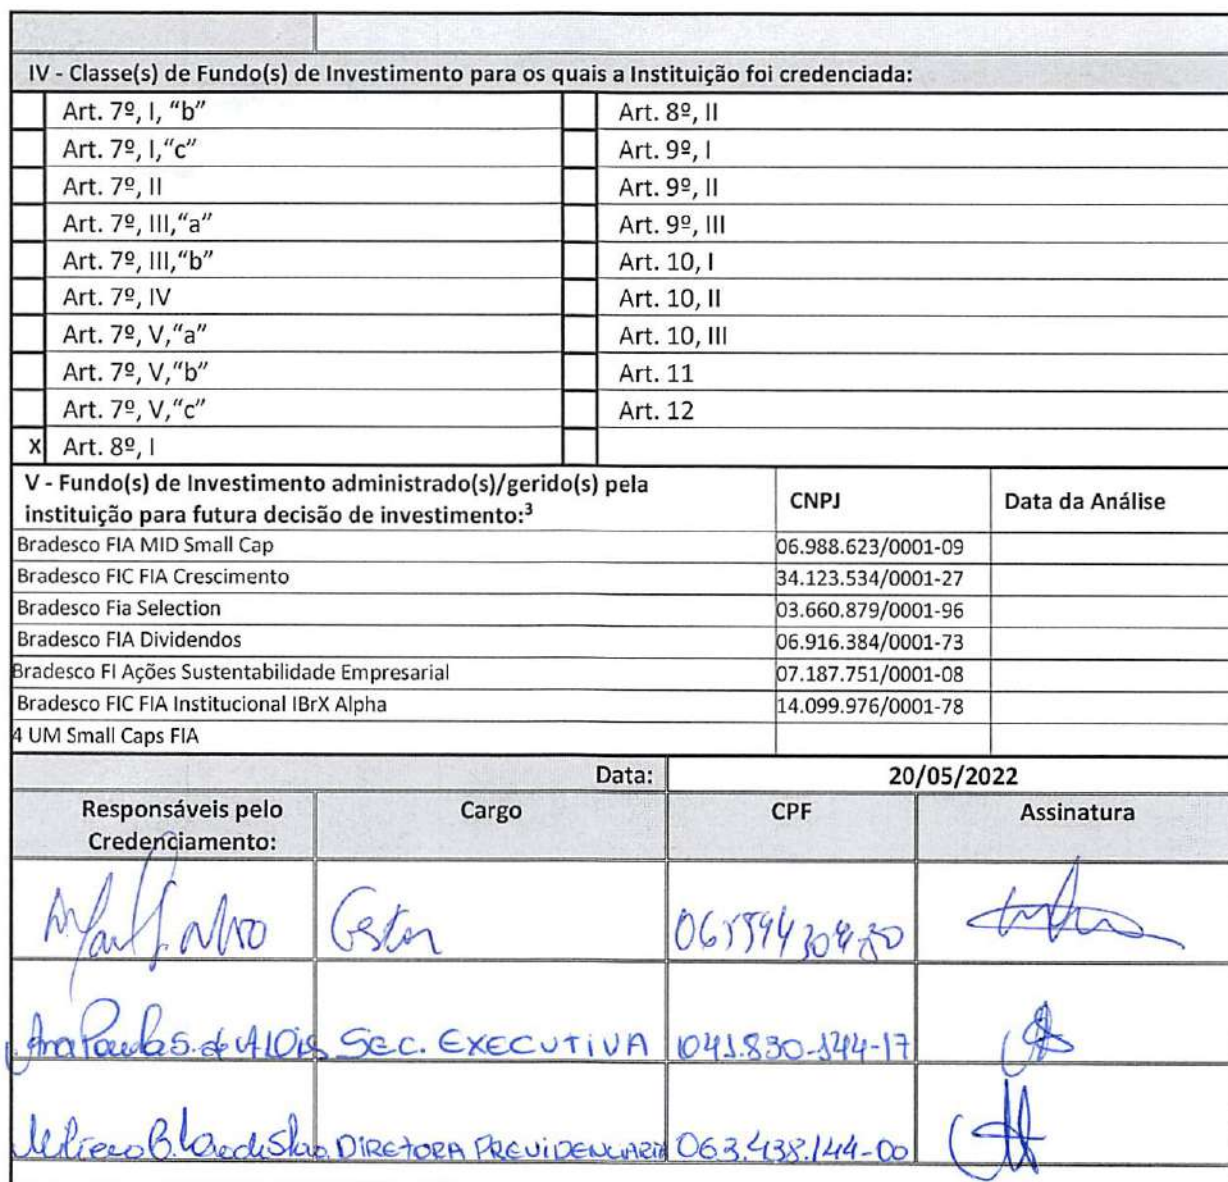 IV - Classe(s) de Fundo(s) de Investimento para os quais a Instituição foi credenciada:
Art. 7º, I, “b” Art. 8º, II
Art. 7º, I,“c” Art. 9º, I
Art. 7º, II Art. 9º, II
Art. 7º, III,“a” Art. 9º, III
Art. 7º, III,“b” Art. 10, I
Art. 7º, IV Art. 10, II
Art. 7º, V,“a” Art. 10, III
Art. 7º, V,“b” Art. 11
Art. 7º, V,“c” Art. 12
X Art. 8º, I
V - Fundo(s) de Investimento administrado(s)/gerido(s) pela
instituição para futura decisão de investimento:³ CNPJ Data da Análise
Bradesco FIA MID Small Cap 06.988.623/0001-09
Bradesco FIC FIA Crescimento 34.123.534/0001-27
Bradesco Fia Selection 03.660.879/0001-96
Bradesco FIA Dividendos 06.916.384/0001-73
Bradesco FI Ações Sustentabilidade Empresarial 07.187.751/0001-08
Bradesco FIC FIA Institucional IBrX Alpha 14.099.976/0001-78
4 UM Small Caps FIA
Data: 20/05/2022
Responsáveis pelo Cargo CPF Assinatura
Credenciamento:
Gestor
Ana Paula S. de SEC. EXECUTIVA 041.830-144-17
DIRETORA PREVIDENCIARIA 063.438.144-00